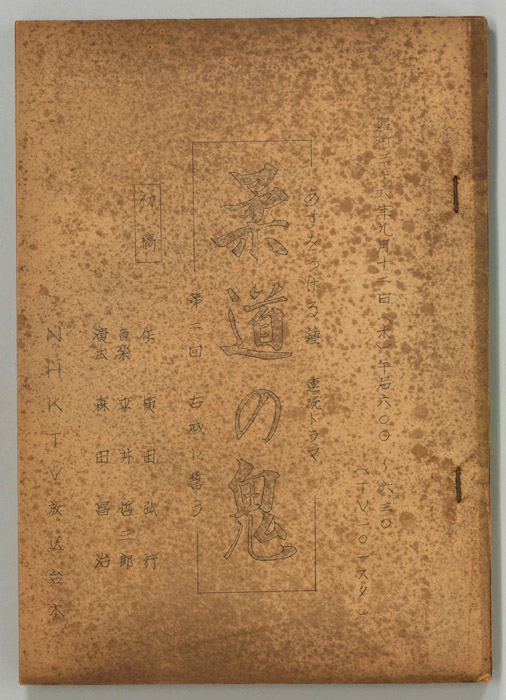 昭和三十八年九月十二日(木) 午后六〇〇〜六三〇
(TV一〇一スタ)
あすをつげる鐘 連続ドラマ
柔道の鬼
第一回 古城に誓う
初稿
作 横田弘行
音楽 平井哲三郎
演出 森田富治
NHKTV放送台本